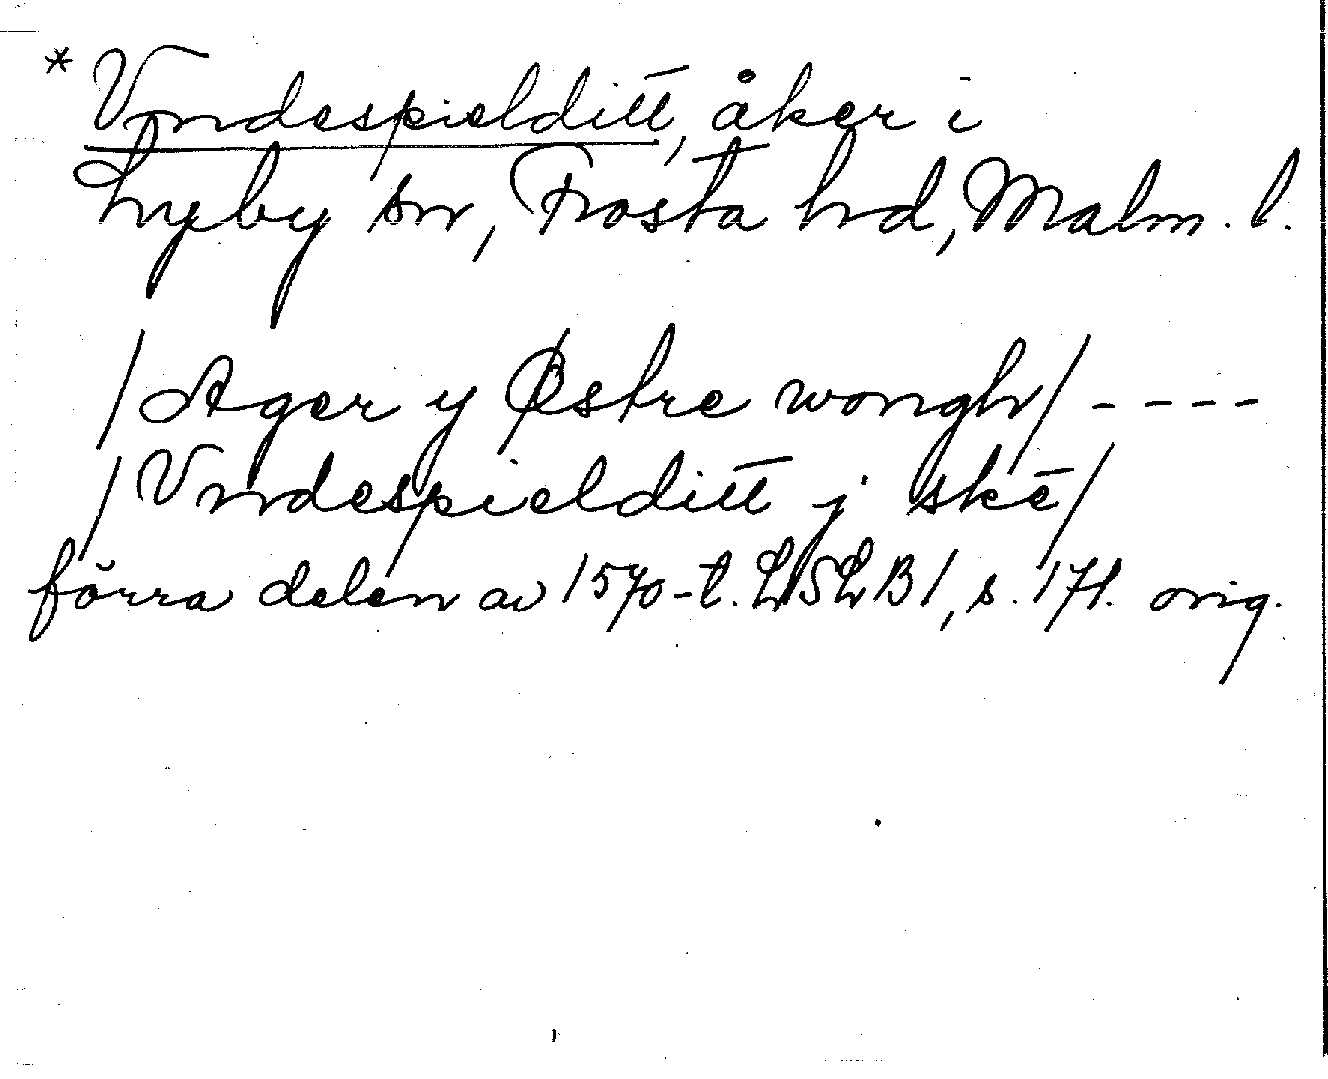 * Vndespielditt, åker i
Lyby sn, Frosta hd, Malm. l.
/Ager y Østre wongh/ - - - -
/Vndespielditt j skē/
förra delen av 1570-t. LSLB1, s. 171. orig.